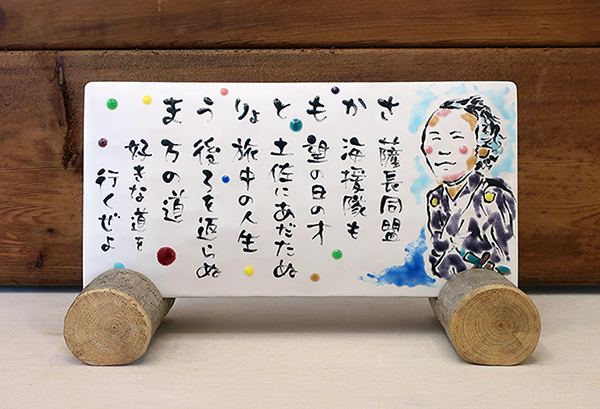 さ 薩長同盟
か 海援隊も
も 望の日の才
と 土佐にあだたぬ
りょ 旅中の人生
う 後ろを返らぬ
ま 万の道
好きな道を
行くぜよ